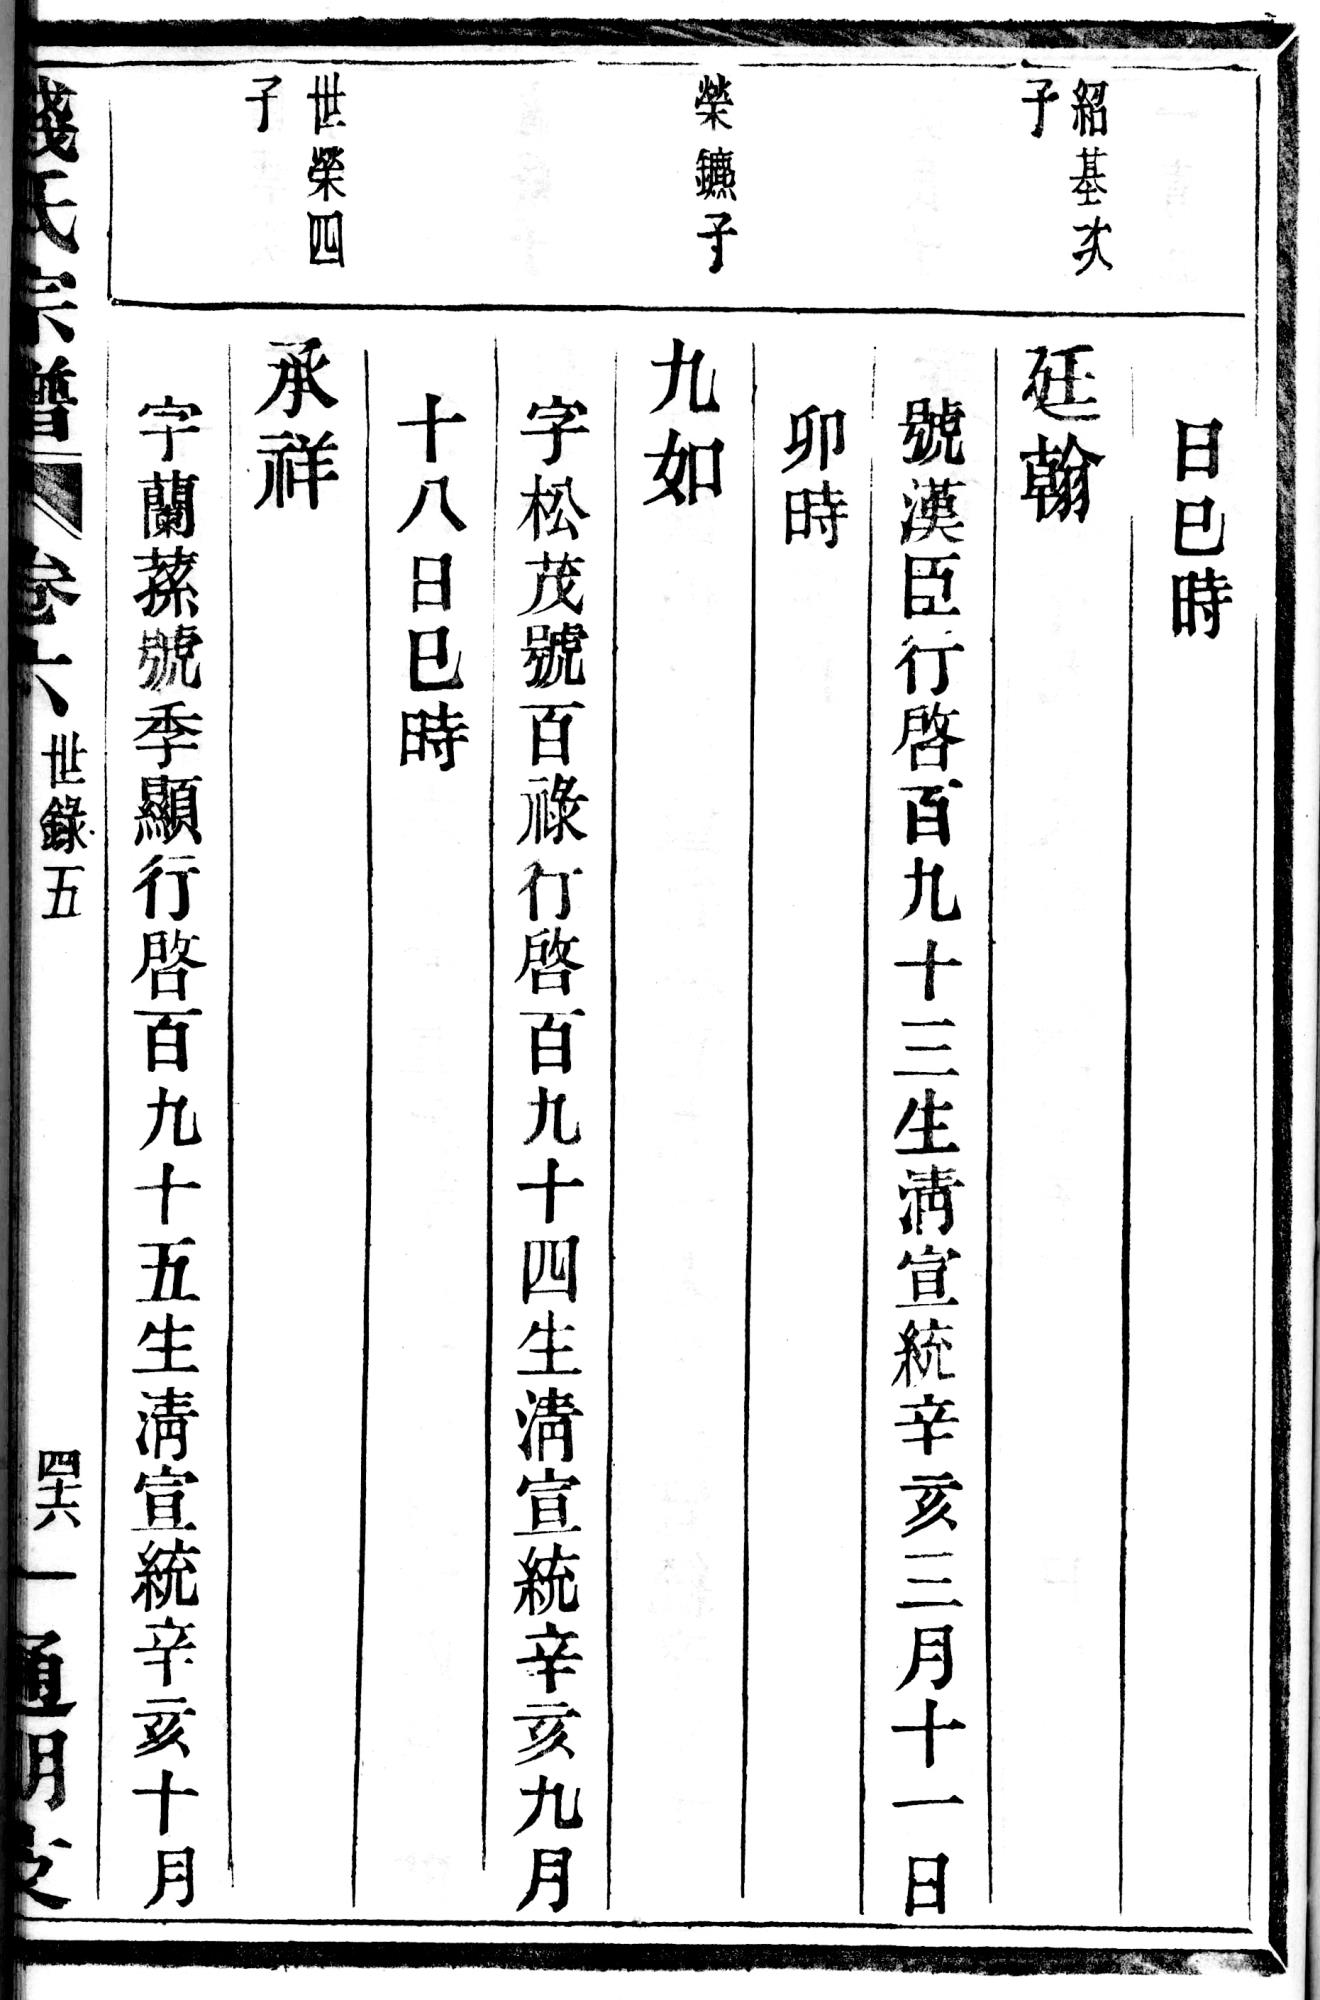 日巳時
紹基次
子
廷翰
號漢臣行啓百九十三生淸宣統辛亥三月十一日
卯時
榮鑣子
九如
字松茂號百祿行啓百九十四生淸宣統辛亥九月
十八日巳時
世榮四
子
承祥
字蘭蓀號季顯行啓百九十五生淸宣統辛亥十月
錢氏宗譜 卷六 世錄五 四十六 通明支